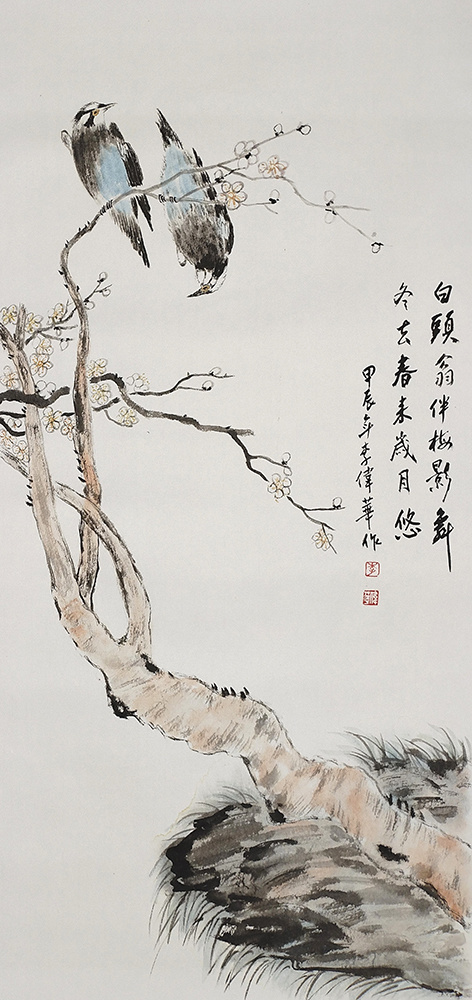 白頭翁伴梅影舞
冬去春来歲月悠
甲辰年李偉華作
李